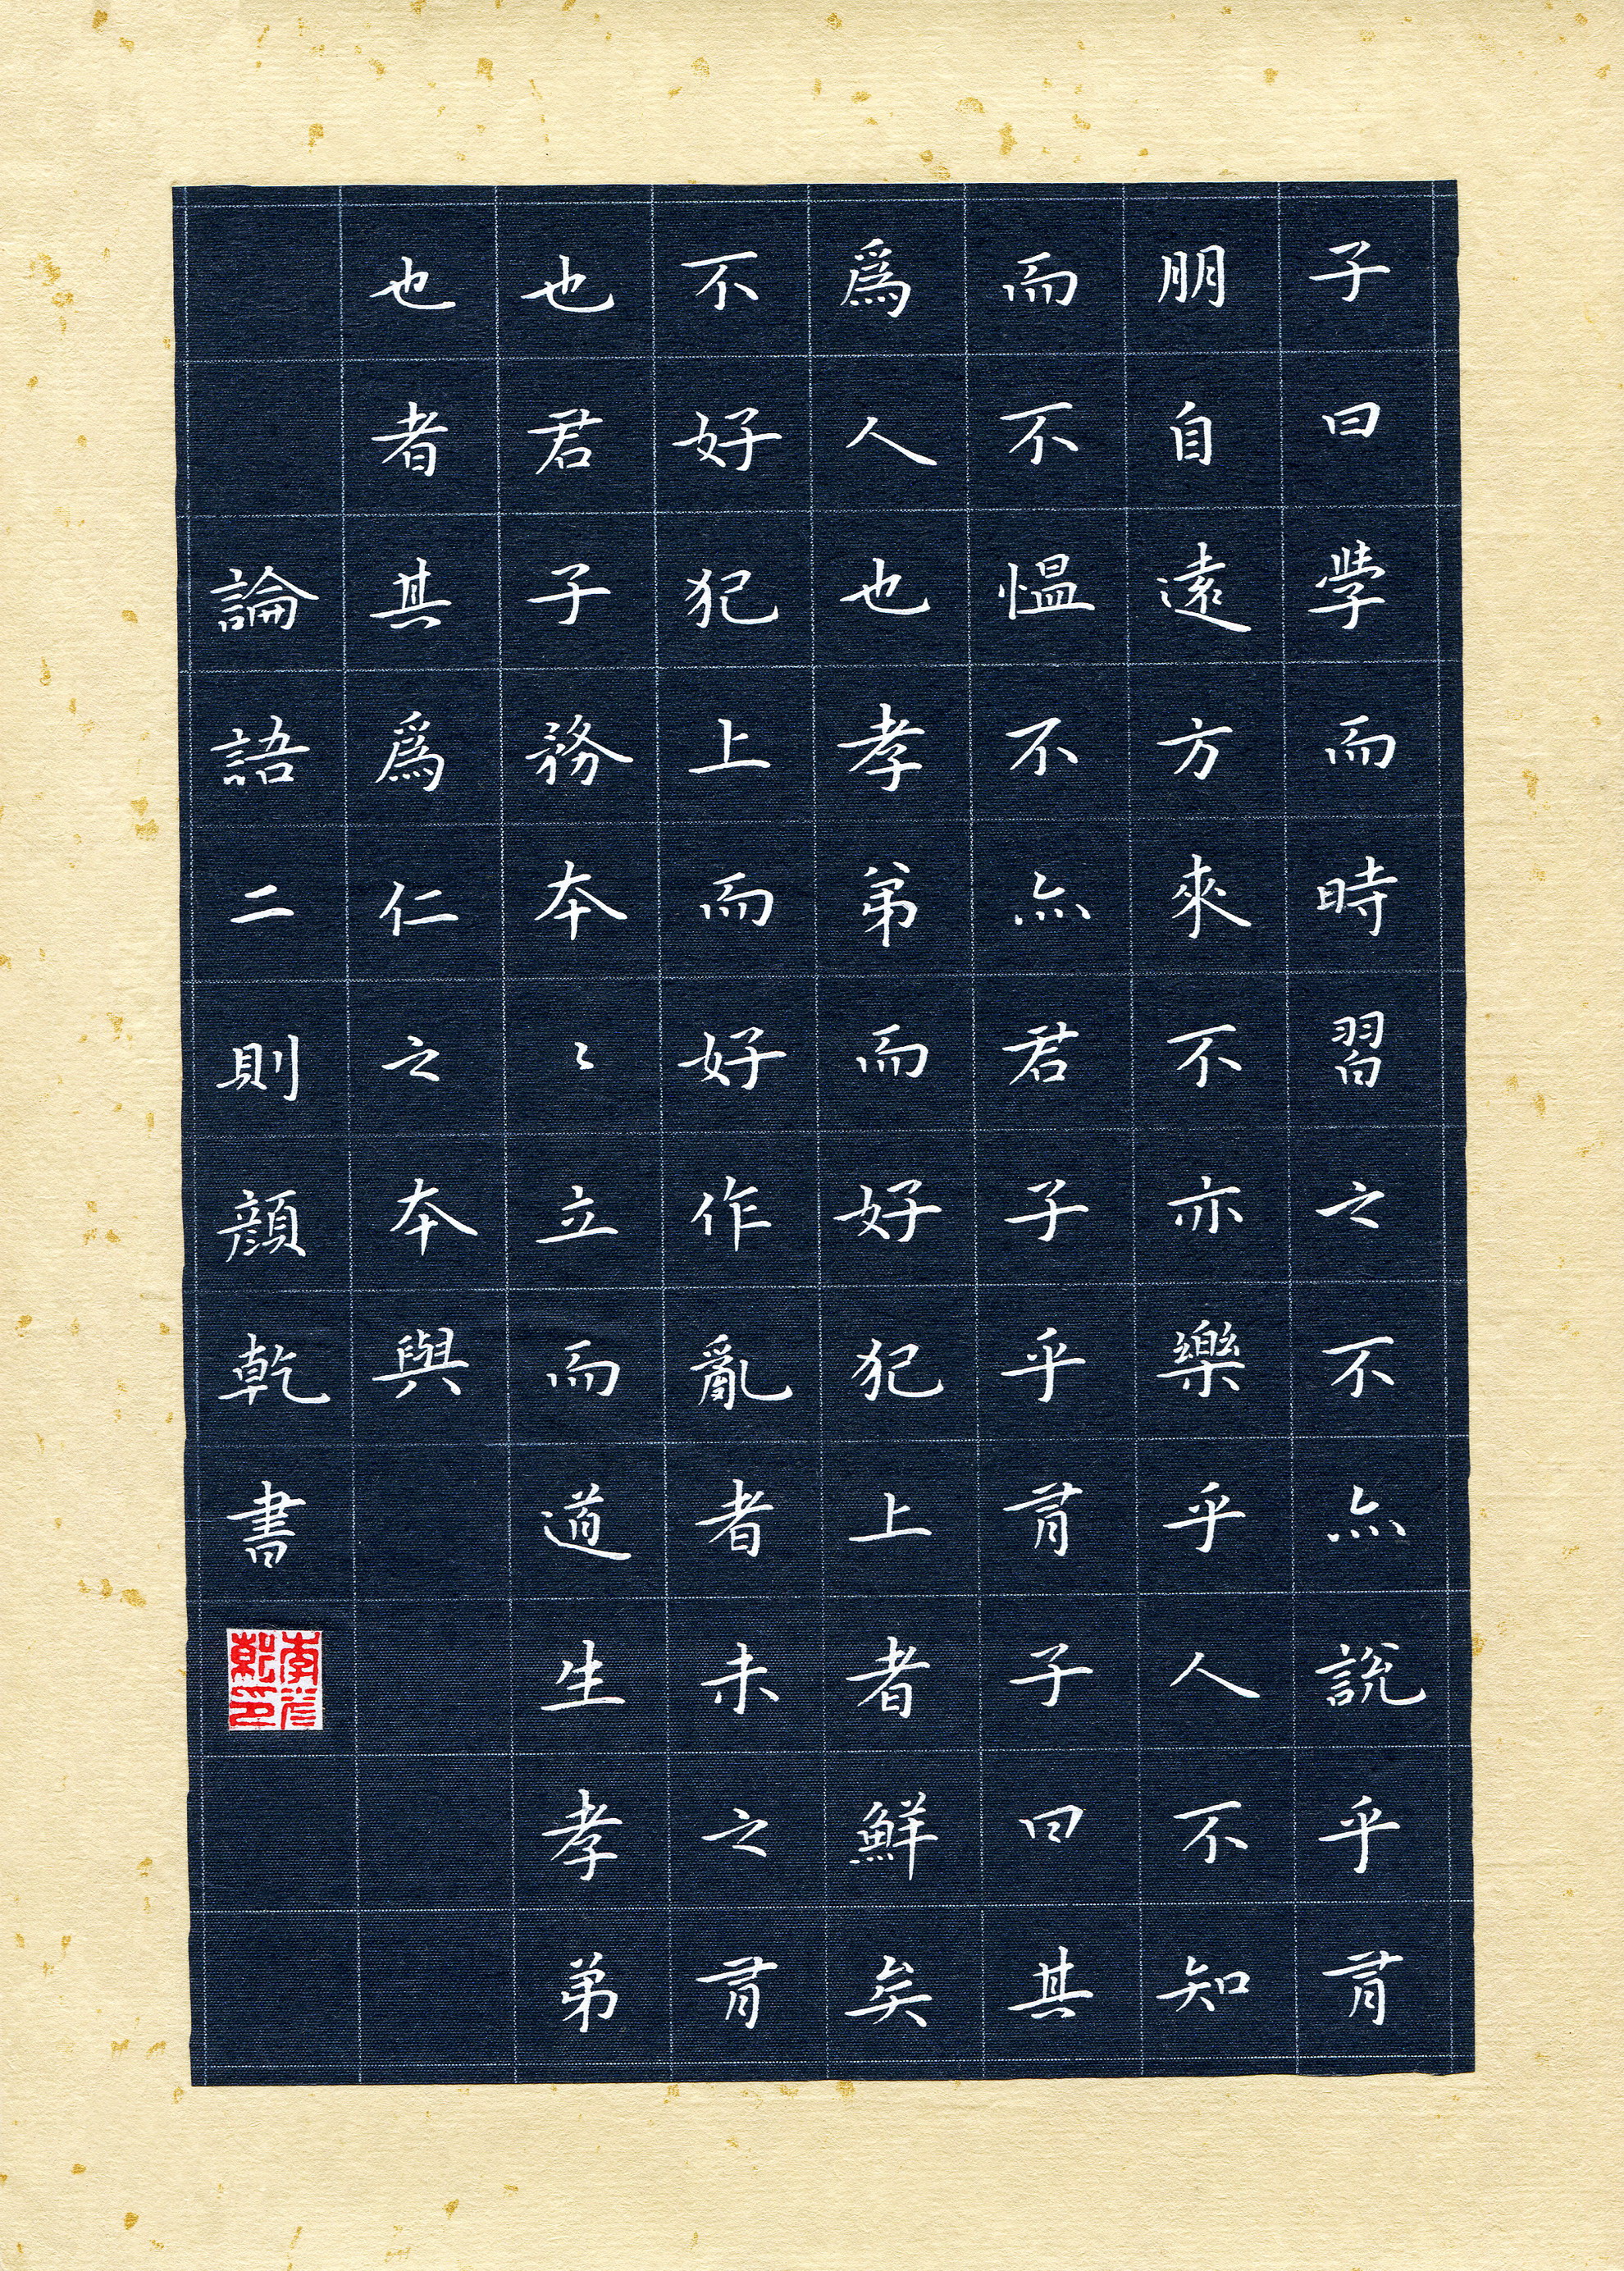 子曰學而時習之不亦說乎有
朋自遠方來不亦樂乎人不知
而不慍不亦君子乎有子曰其
爲人也孝弟而好犯上者鮮矣
不好犯上而好作亂者未之有
也君子務本〻立而道生孝弟
也者其爲仁之本與
論語二則顏乾書